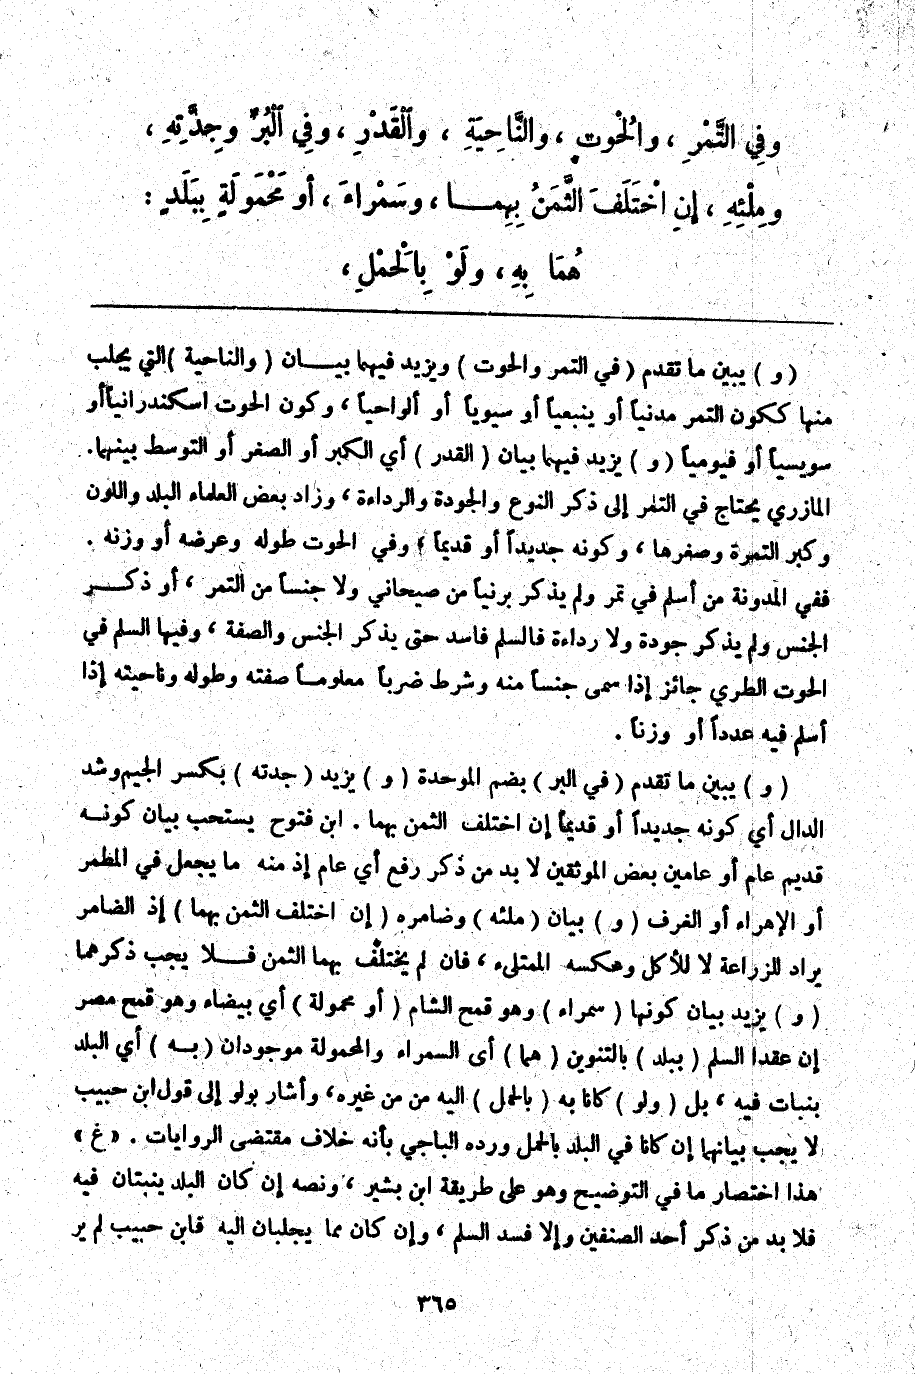 وفِي التَّمْرِ ، والْحُوتِ ، والنَّاحِيَةِ ، والْقَدْرِ ، وفِي الْبُرِّ وجِدَّتِهِ ،
ومِلْئِهِ ، إِنِ اخْتَلَفَ الثَّمَنُ بِهِمَا ، وسَمْرَاءَ ، أو مَحْمُولَةٍ بِبَلَدٍ :
هُمَا بِهِ ، ولَوْ بِالْحَمْلِ ،
( و ) يبين ما تقدم ( في التمر والحوت ) ويزيد فيهما بيــان ( والناحية )التي يجلب
منها ككون التمر مدنياً أو ينبعياً أو سيوياً أو ألواحياً ، وكون الحوت اسكندرانياً أو
سويسياً أو فيومياً ( و ) يزيد فيهما بيان ( القدر ) أي الكبر أو الصغر أو التوسط بينهما.
المازري يحتاج في التمر إلى ذكر النوع والجودة والرداءة ، وزاد بعض العلماء البلد واللون
وكبر التمرة وصغرها ، وكونه جديداً أو قديماً ، وفي الحوت طوله وعرضه أو وزنه .
ففي المدونة من أسلم في تمر ولم يذكر برنياً من صيحاني ولا جنساً من التمر ، أو ذكــر
الجنس ولم يذكر جودة ولا رداءة فالسلم فاسد حتى يذكر الجنس والصفة ، وفيها السلم في
الحوت الطري جائز إذا سمى جنساً منه وشرط ضرباً معلومــاً صفته وطوله وناحيته إذا
أسلم فيه عدداً أو وزناً .
( و ) يبين ما تقدم ( في البر ) بضم الموحدة ( و ) يزيد ( جدته ) بكسر الجيم وشد
الدال أي كونه جديداً أو قديماً إن اختلف الثمن بهما . ابن فتوح يستحب بيان كونــه
قديم عام أو عامين بعض الموثقين لا بد من ذكر رفع أي عام إذ منه ما يجعل في المظمر
أو الإهراء أو الغرف ( و ) بيان ( ملئه ) وضامره ( إن اختلف الثمن بهما ) إذ الضامر
يراد للزراعة لا للأكل وعكسه الممتلىء ، فان لم يختلف بهما الثمن فــلا يجب ذكرهما
( و ) يزيد بيان كونها ( سمراء ) وهو قمح الشام ( أو محمولة ) أي بيضاء وهو قمح مصر
إن عقدا السلم ( ببلد ) بالتنوين ( هما ) أى السمراء والمحمولة موجودان ( بــه ) أي البلد
بنبات فيه ، بل ( ولو ) كانا به ( بالحمل ) اليه من من غيره، وأشار بولو إلى قول ابن حبيب
لا يجب بيانهما إن كانا في البلد بالحمل ورده الباجي بأنه خلاف مقتضى الروايات . « غ »
هذا اختصار ما في التوضيح وهو على طريقة ابن بشير ، ونصه إن كان البلد ينبتان فيه
فلا بد من ذكر أحد الصنفين وإلا فسد السلم ، وإن كان مما يجلبان اليه فابن حبيب لم ير
٣٦٥